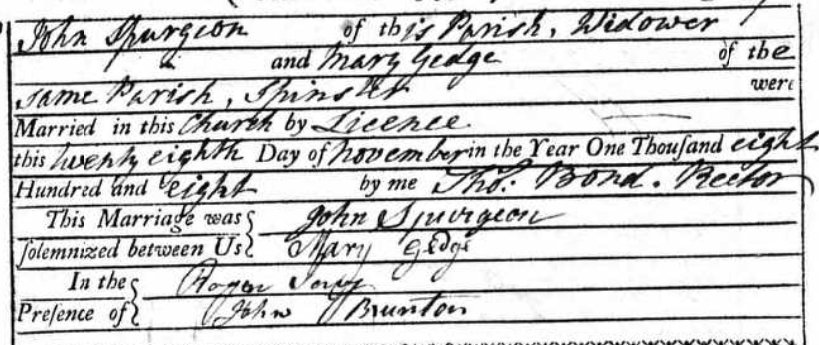 John Spurgeon of this Parish, Widower
and Mary Gedge of the
same Parish, Spinster were
Married in this Church by Licence
this twenty eighth Day of November in the Year One Thouſand eight
Hundred and eight by me Thos: Bond. Rector
This Marriage was
ſolemnized between Us
John Spurgeon
Mary Gedge
In the
Preſence of
Roger
John Brunton